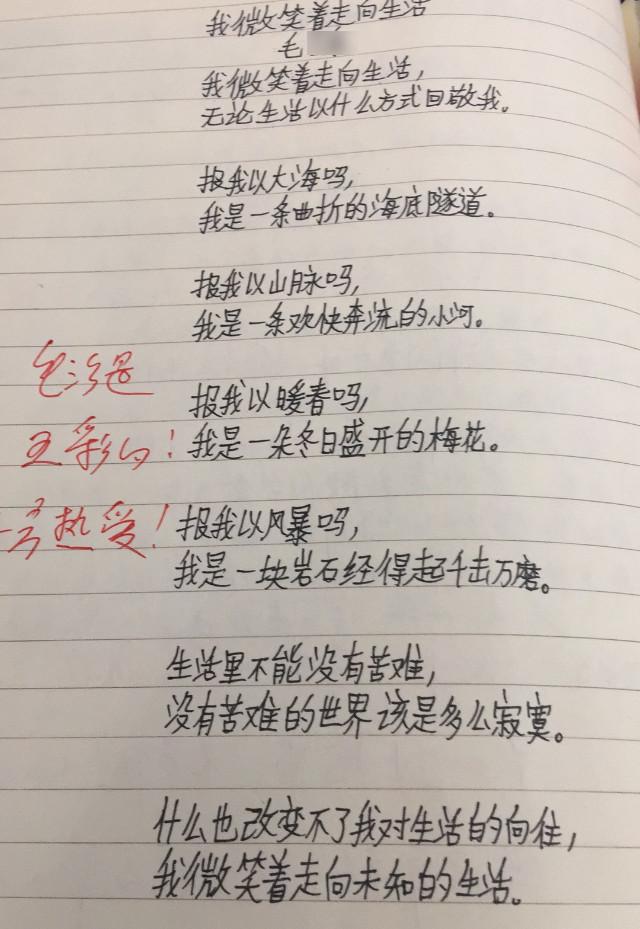 我微笑着走向生活
毛
我微笑着走向生活，
无论生活以什么方式回敬我。
报我以大海吗，
我是一条曲折的海底隧道。
报我以山脉吗，
我是一条欢快奔流的小河。
报我以暖春吗，
我是一朵冬日盛开的梅花。
报我以风暴吗，
我是一块岩石经得起千击万磨。
生活里不能没有苦难，
没有苦难的世界该是多么寂寞。
什么也改变不了我对生活的向往，
我微笑着走向未知的生活。
生活是
五彩的！
热爱！